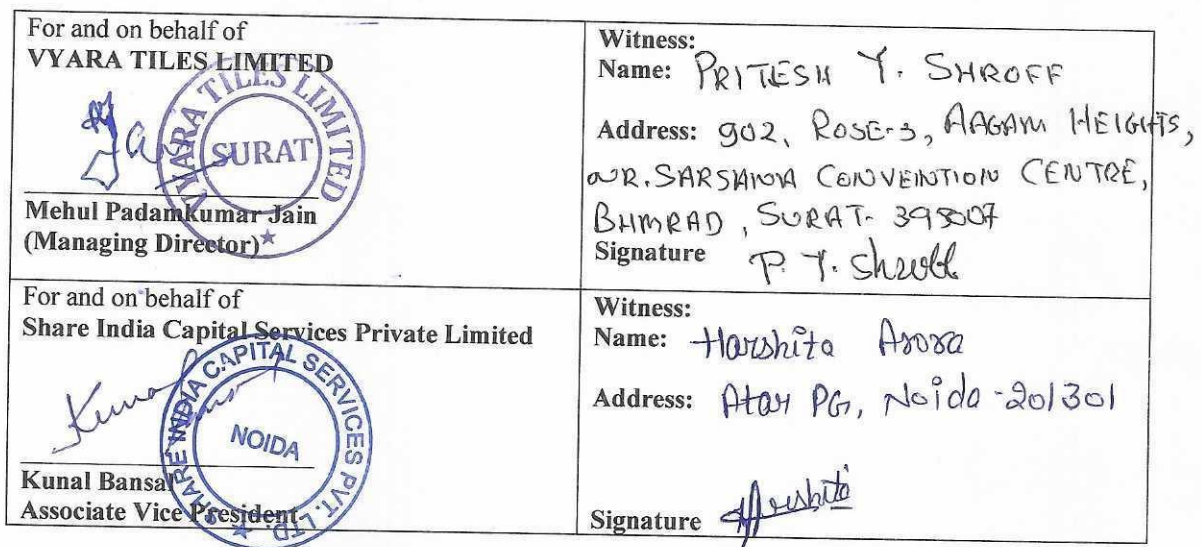 For and on behalf of
VYARA TILES LIMITED
VYARA TILES LIMITED
SURAT
Mehul Padamkumar Jain
(Managing Director)
Witness:
Name: PRITESH Y. SHROFF
Address: 902, ROSE-3, AAGAM HEIGHTS,
NR. SARSANA CONVEINTION CENTRE,
BHMRAD, SURAT- 395007
Signature P. Y. Shroff
For and on behalf of
Share India Capital Services Private Limited
SHARE INDIA CAPITAL SERVICES PVT. LTD.
NOIDA
Kunal Bansal
Associate Vice President
Witness:
Name: Harshita Arora
Address: Atar PG, Noida-201301
Signature Harshita